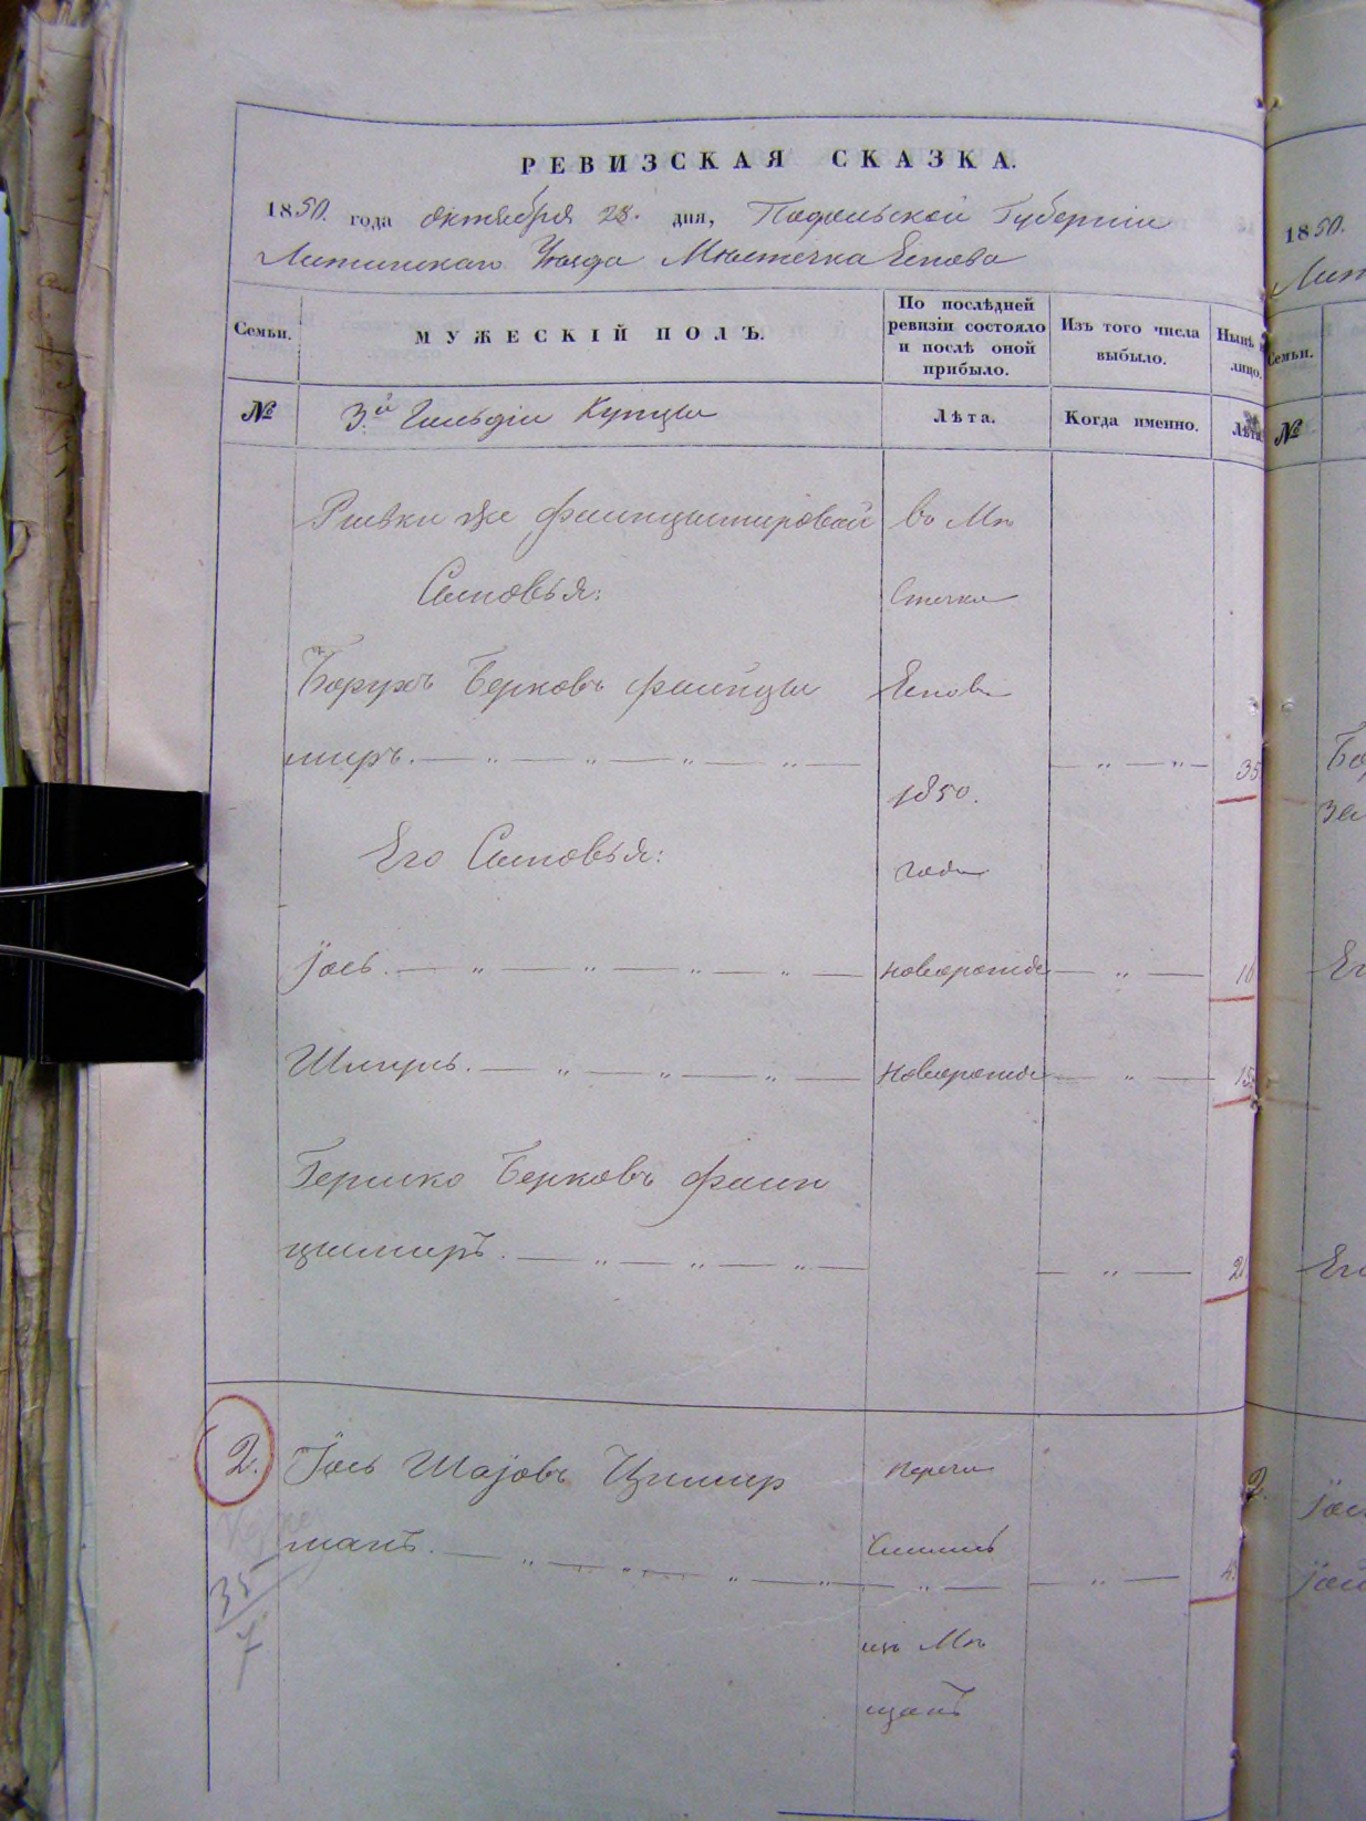 РЕВИЗСКАЯ СКАЗКА.
1850. года октября 28. дня, Подольской Губерніи
Литинскаго Уѣзда Мѣстечка
Семьи.
МУЖЕСКІЙ ПОЛЪ.
По послѣдней
ревизіи состояло
и послѣ оной
прибыло.
Изъ того числа
выбыло.
Нынѣ
лицо.
№
3.й Гильдіи Купцы
Лѣта.
Когда именно.
Лѣта
Ривки же
въ Мѣ
Сыновья:
стечка
Борухъ Берковъ Файнцы
миръ. — „ — „ — „ — „ — — „ — „ — 35
1850.
Его Сыновья:
года
Іось. — „ — „ — „ — „ — новорожде — „ — 16
Шмуль. — „ — „ — „ — новорожде — „ — 15
Гершко Берковъ Файн
цимиръ. — „ — „ — „ — — „ — 21
2. Іось Шајовъ Цимер
перечи
манъ. — „ — „ — „ — „ — „ — — „ —
сленъ
изъ Мѣ
щанъ
35
7
1850.
Лит
Семьи.
№
Бо
за
Ег
Его
2.
Іос